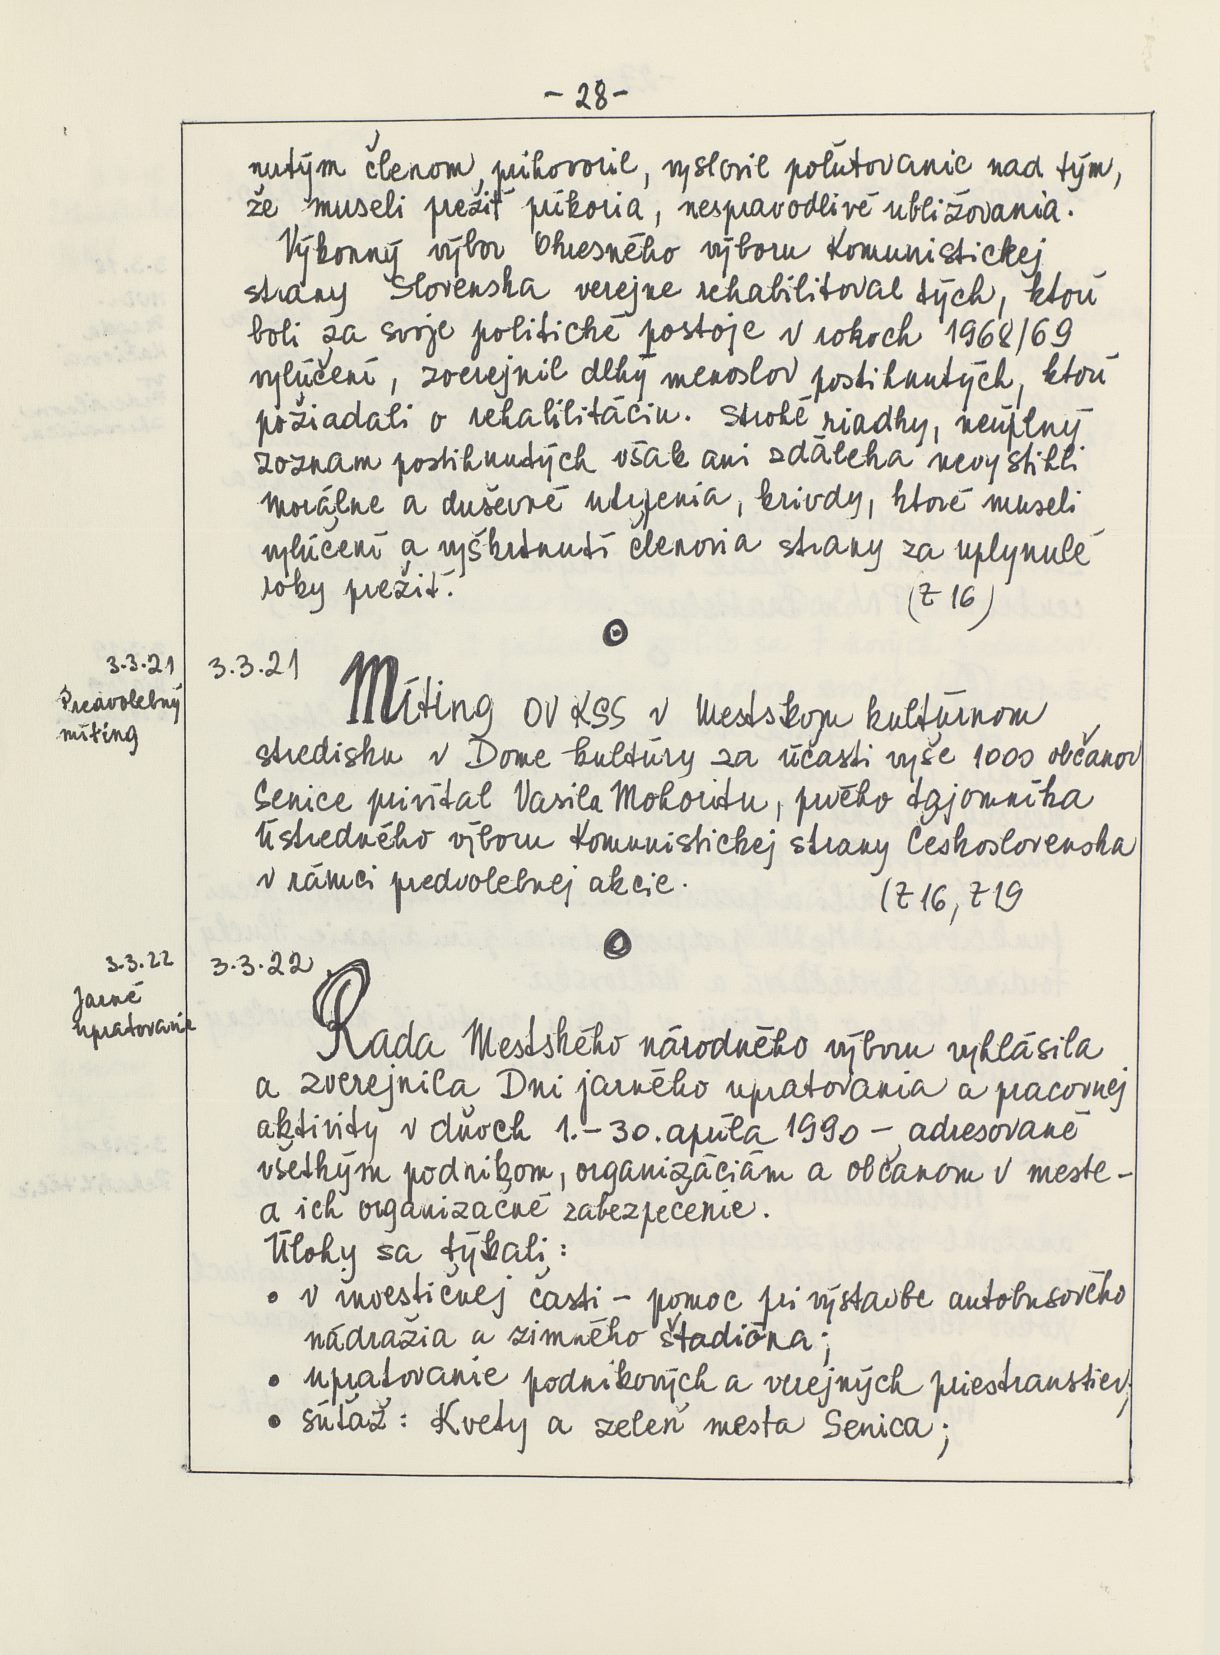 - 28 -
nutým členom prihovoril, vyslovil poľutovanie nad tým,
že museli prežiť príkoria, nespravodlivé ubližovania.
Výkonný výbor Okresného výboru Komunistickej
strany Slovenska verejne rehabilitoval tých, ktorí
boli za svoje politické postoje v rokoch 1968/69
vylúčení, zverejnil dlhý menoslov postihnutých, ktorí
požiadali o rehabilitáciu. Strohé riadky, neúplný
zoznam postihnutých však ani zďaleka nevystihli
morálne a duševné utrpenia, krivdy, ktoré museli
vylúčení a vyškrtnutí členovia strany za uplynulé
roky prežiť.
(Z 16)
3.3.21
Predvolebný
míting
3.3.21
Míting OV KSS v Mestskom kultúrnom
stredisku v Dome kultúry za účasti vyše 1000 občanov
Senice privítal Vasila Mohoritu, prvého tajomníka
Ústredného výboru Komunistickej strany Československa
v rámci predvolebnej akcie.
(Z 16, Z 19
3.3.22
Jarné
upratovanie
3.3.22
Rada Mestského národného výboru vyhlásila
a zverejnila Dni jarného upratovania a pracovnej
aktivity v dňoch 1. - 30. apríla 1990 - adresované
všetkým podnikom, organizáciám a občanom v meste -
a ich organizačné zabezpečenie.
Úlohy sa týkali:
• v investičnej časti - pomoc pri výstavbe autobusového
nádražia a zimného štadióna;
• upratovanie podnikových a verejných priestranstiev;
• súťaž: Kvety a zeleň mesta Senica;